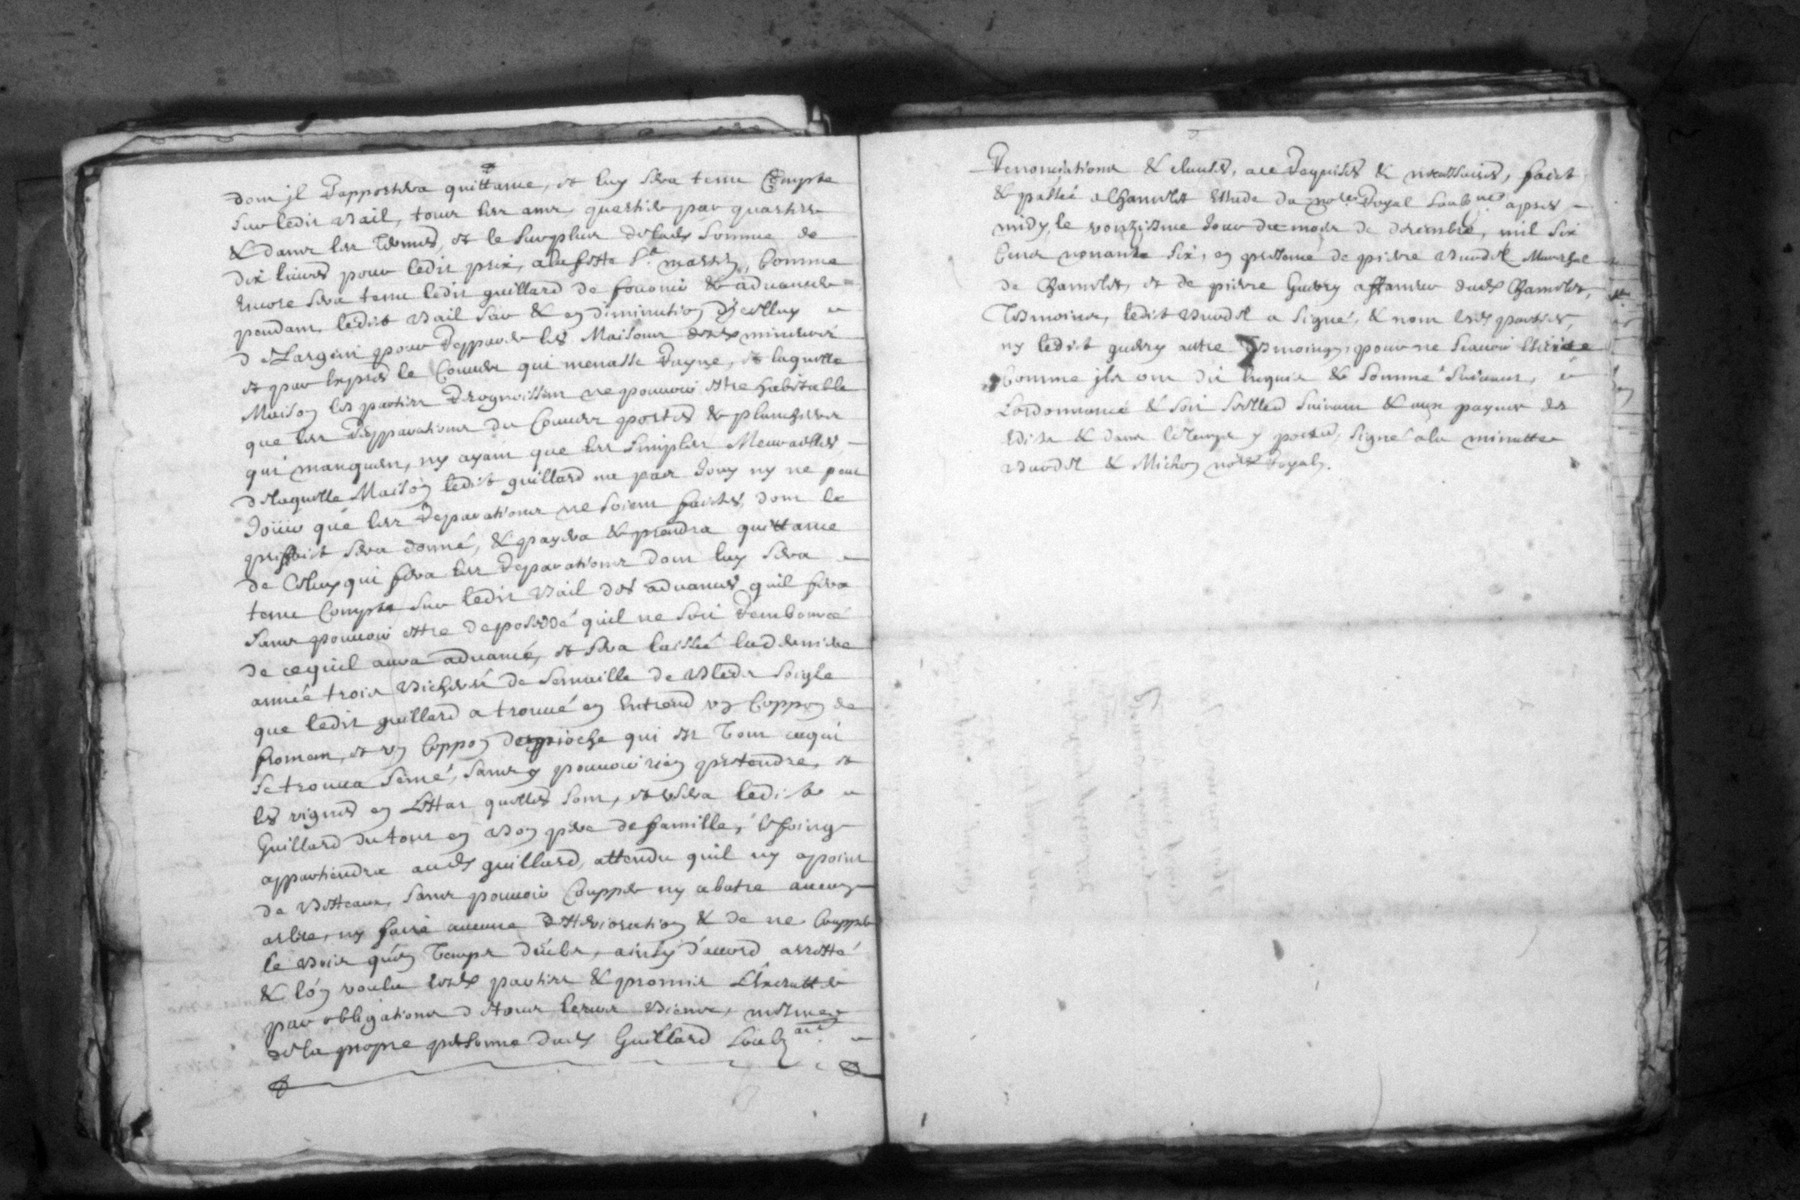 dont jl rapportera quittance, et luy sera tenu Compte
sur ledit Bail, tous les ans, quartier par quartier
& dans les Termes, et le surplus de lad. somme de
dix livres pour ledit prix, a la feste St. martin, Comme
encore sera tenu ledit guillard de fournir & advancer
pendant ledit Bail sur & en diminution d'icelluy
de l'argent pour repparer les Maisons desd. mineurs
et par exprès le Couvert qui menasse Ruyne, et laquelle
Maison les parties recognoissent ne pouvoir estre habitable
que les repparations du Couvert portes & planchers
qui manquent, ny ayant que les simples Meurailles,
de laquelle Maison ledit guillard ne pas Jouy ny ne peut
Joüir que les reparations ne soient faictes, dont le
prixfaict sera donné, & payera & prendra quittance
de Celuy qui fera les reparations dont luy sera
tenu Compte sur ledit Bail des advances quil fera
sans pouvoir estre deposseddé quil ne soit remboursé
de cequil aura advancé, et sera laissé lad. derniere
année trois Bicherés de semaille de Bleds soigle
que ledit guillard a trouvé en Entrant un Coppon de
froment, et un Coppon de pioche qui est Tout cequi
se trouva semé, sans y pouvoir rien pretendre, et
les vignes en L'estat quelles sont, et usera ledit
Guillard du tout en Bon pere de famille, le foing
appartiendra aud. guillard, attendu quil ny a point
de Besteaux, sans pouvoir Coupper ny abatre aucung
arbre, ny faire aucune detterioration & de ne Coupper
le Bois qu'en Temps deüebs, ainsy d'accord arresté
& l'on voulu lesd. parties & promis L'executter
par obligations de tous leurs Biens, mesmes
de la propre personne dud. Guillard soubz
Renonciations & clauses, ace requises & necessaires, faict
& passé a Chamelet Estude du nore. Royal soubné. apres
midy, le vonziesme Jour du mois de decembre, mil six
Cens nonante six, en presence de pierre Burdel Mareschal
de Chamelet, et de pierre Guerry affaneur dud. Chamelet,
Tesmoins, ledit Burdel a signé, & non lesd. parties,
ny ledit guerry autre tesmoing, pour ne scavoir Escrire
Comme jls ont dit Enquis & sommé suivant,
Lordonnance & soit scellées suivant & aux peynes des
Edits & dans le Temps y porté, signé a la minutte
Burdel & Michon nore. Royal.